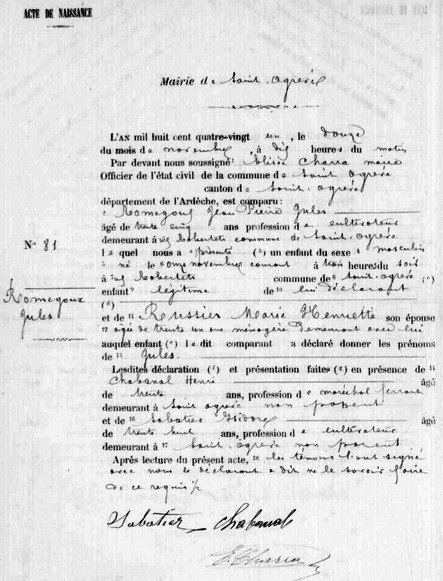 ACTE DE NAISSANCE
Mairie de Saint Agrève
L'AN mil huit cent quatre-vingt un, le douze
du mois de novembre, à dix heures du matin
Par devant nous soussigné Charra maire
Officier de l'état civil de la commune de Saint Agrève
canton de Saint Agrève
département de l'Ardèche, est comparu :
Romegoux Jean Pierre Jules
âgé de trente cinq ans, profession de cultivateur
demeurant à commune de Saint Agrève
le quel nous a présenté (5) un enfant du sexe masculin
né le onze novembre courant à trois heures du soir
à commune de Saint Agrève
enfant légitime de lui déclarant
et de Russier Marie Henriette son épouse
âgée de trente un ans ménagère demeurant avec lui
auquel enfant le dit comparant a déclaré donner les prénoms
de Jules.
Lesdites déclaration et présentation faites en présence de
Chabanal Henri âgé
de trente ans, profession de maréchal ferrant
demeurant à Saint Agrève non parent
et de Sabatier Isidore âgé
de trente huit ans, profession de cultivateur
demeurant à 17 Saint Agrève non parent.
Après lecture du présent acte, les témoins l'ont signé
avec nous le déclarant a dit ne le savoir faire
de ce requis
N° 81
Romegoux
Jules
Sabatier Chabanal
Charra